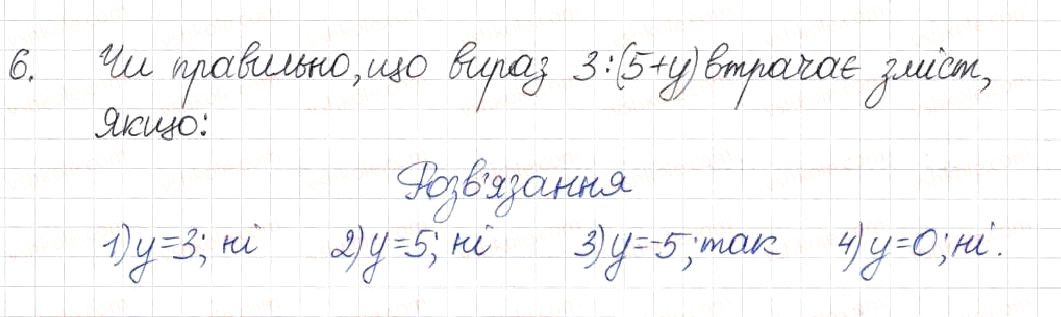 6. Чи правильно, що вираз 3:(5+y) втрачає зміст,
якщо:
Розв'язання
1) y=3; ні 2) y=5; ні 3) y=-5; так 4) y=0; ні.